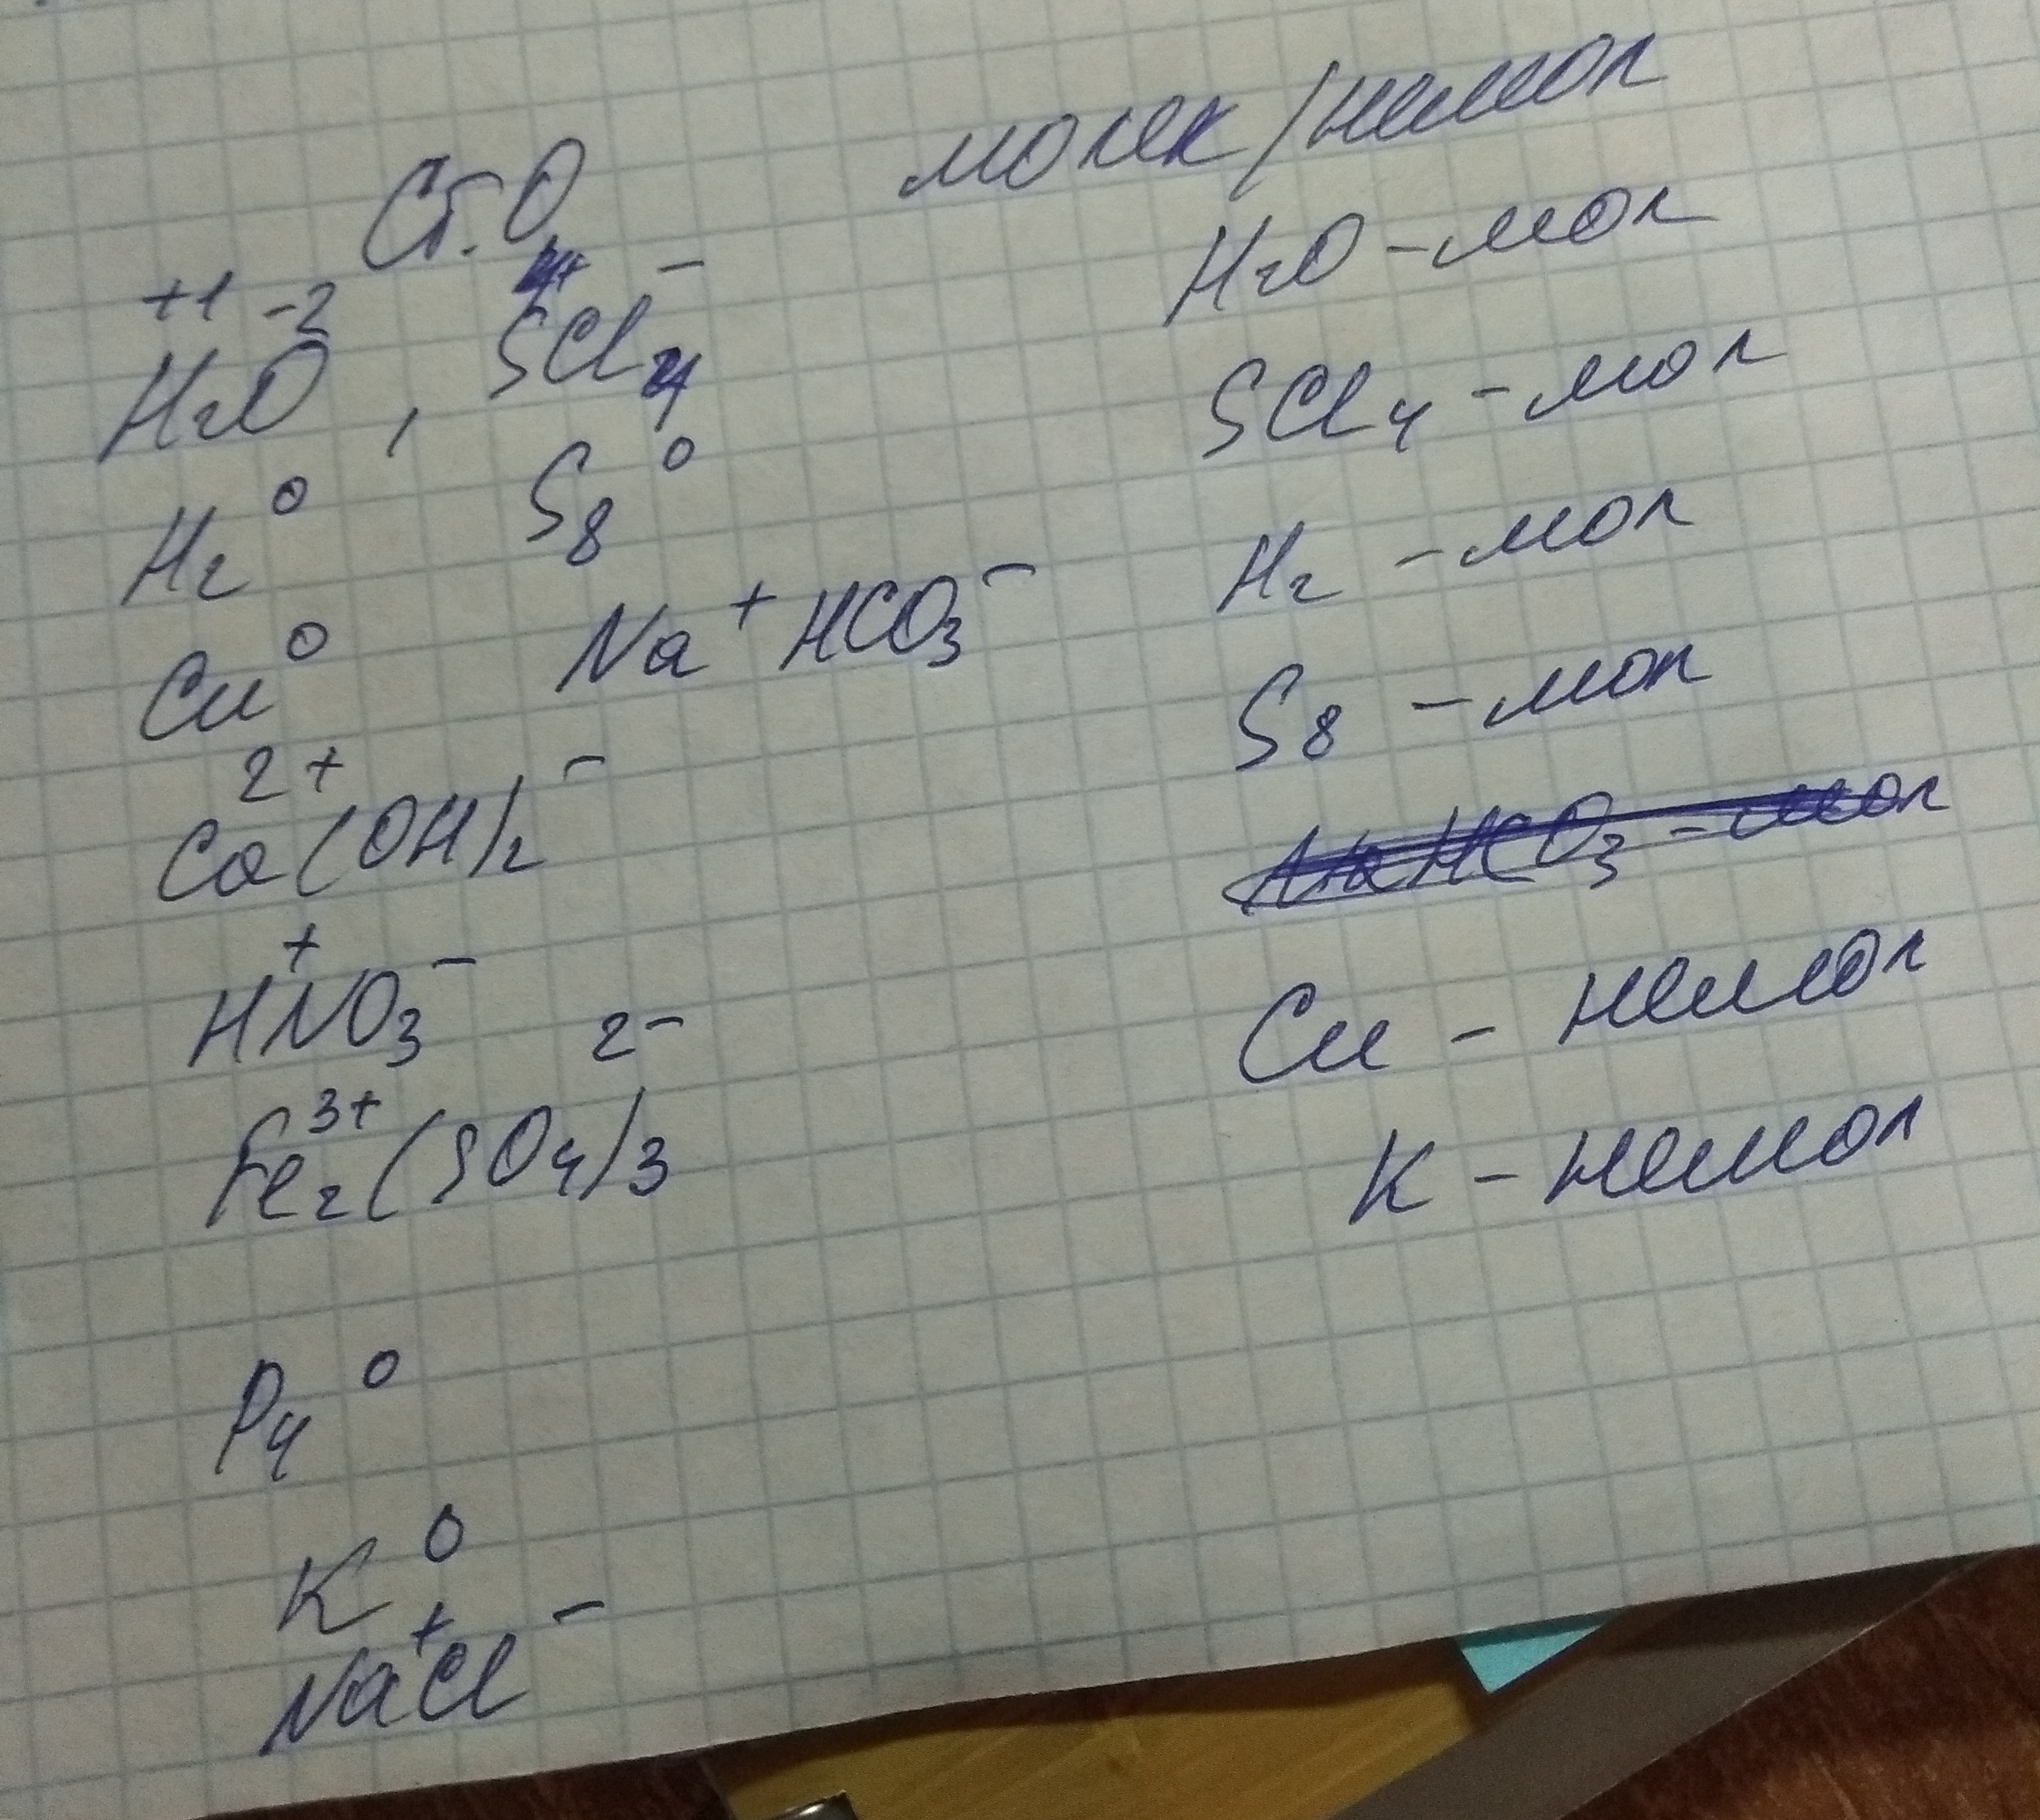 Ст.О
+1 -2 4+ -
H2O , SCl4
H2 0 S8 0
Cu 0 Na + HCO3 -
2+ -
Ca(OH)2
+ -
HNO3
3+ 2-
Fe2(SO4)3
P4 0
K 0
+ -
NaCl
молек/немол
H2O - мол
SCl4 - мол
H2 - мол
S8 - мол
NaHCO3 - мол
Cu - немол
K - немол